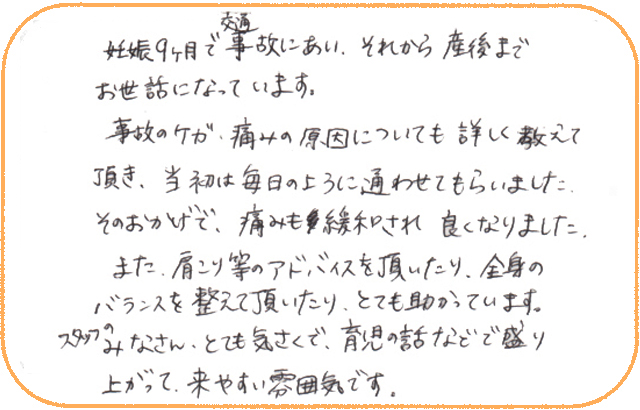 妊娠9ヶ月で交通事故にあい、それから産後まで
お世話になっています。
事故のケガ、痛みの原因についても詳しく教えて
頂き、当初は毎日のように通わせてもらいました。
そのおかげで、痛みも緩和され良くなりました。
また、肩こり等のアドバイスを頂いたり、全身の
バランスを整えて頂いたり、とても助かっています。
スタッフのみなさん、とても気さくで、育児の話などで盛り
上がって、来やすい雰囲気です。